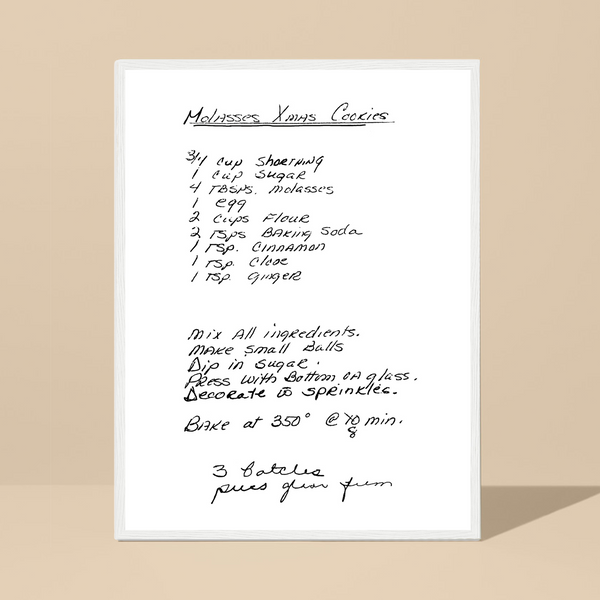 Molasses Xmas Cookies
3/4 cup Shortning
1 cup Sugar
4 TBSPS. Molasses
1 egg
2 cups Flour
2 Tsps Baking Soda
1 Tsp. Cinnamon
1 Tsp. Clove
1 Tsp. Ginger
Mix All ingredients.
Make Small Balls
Dip in Sugar.
Press with Bottom of glass.
Decorate sprinkles.
Bake at 350° @ 10 min.
8
3 batches